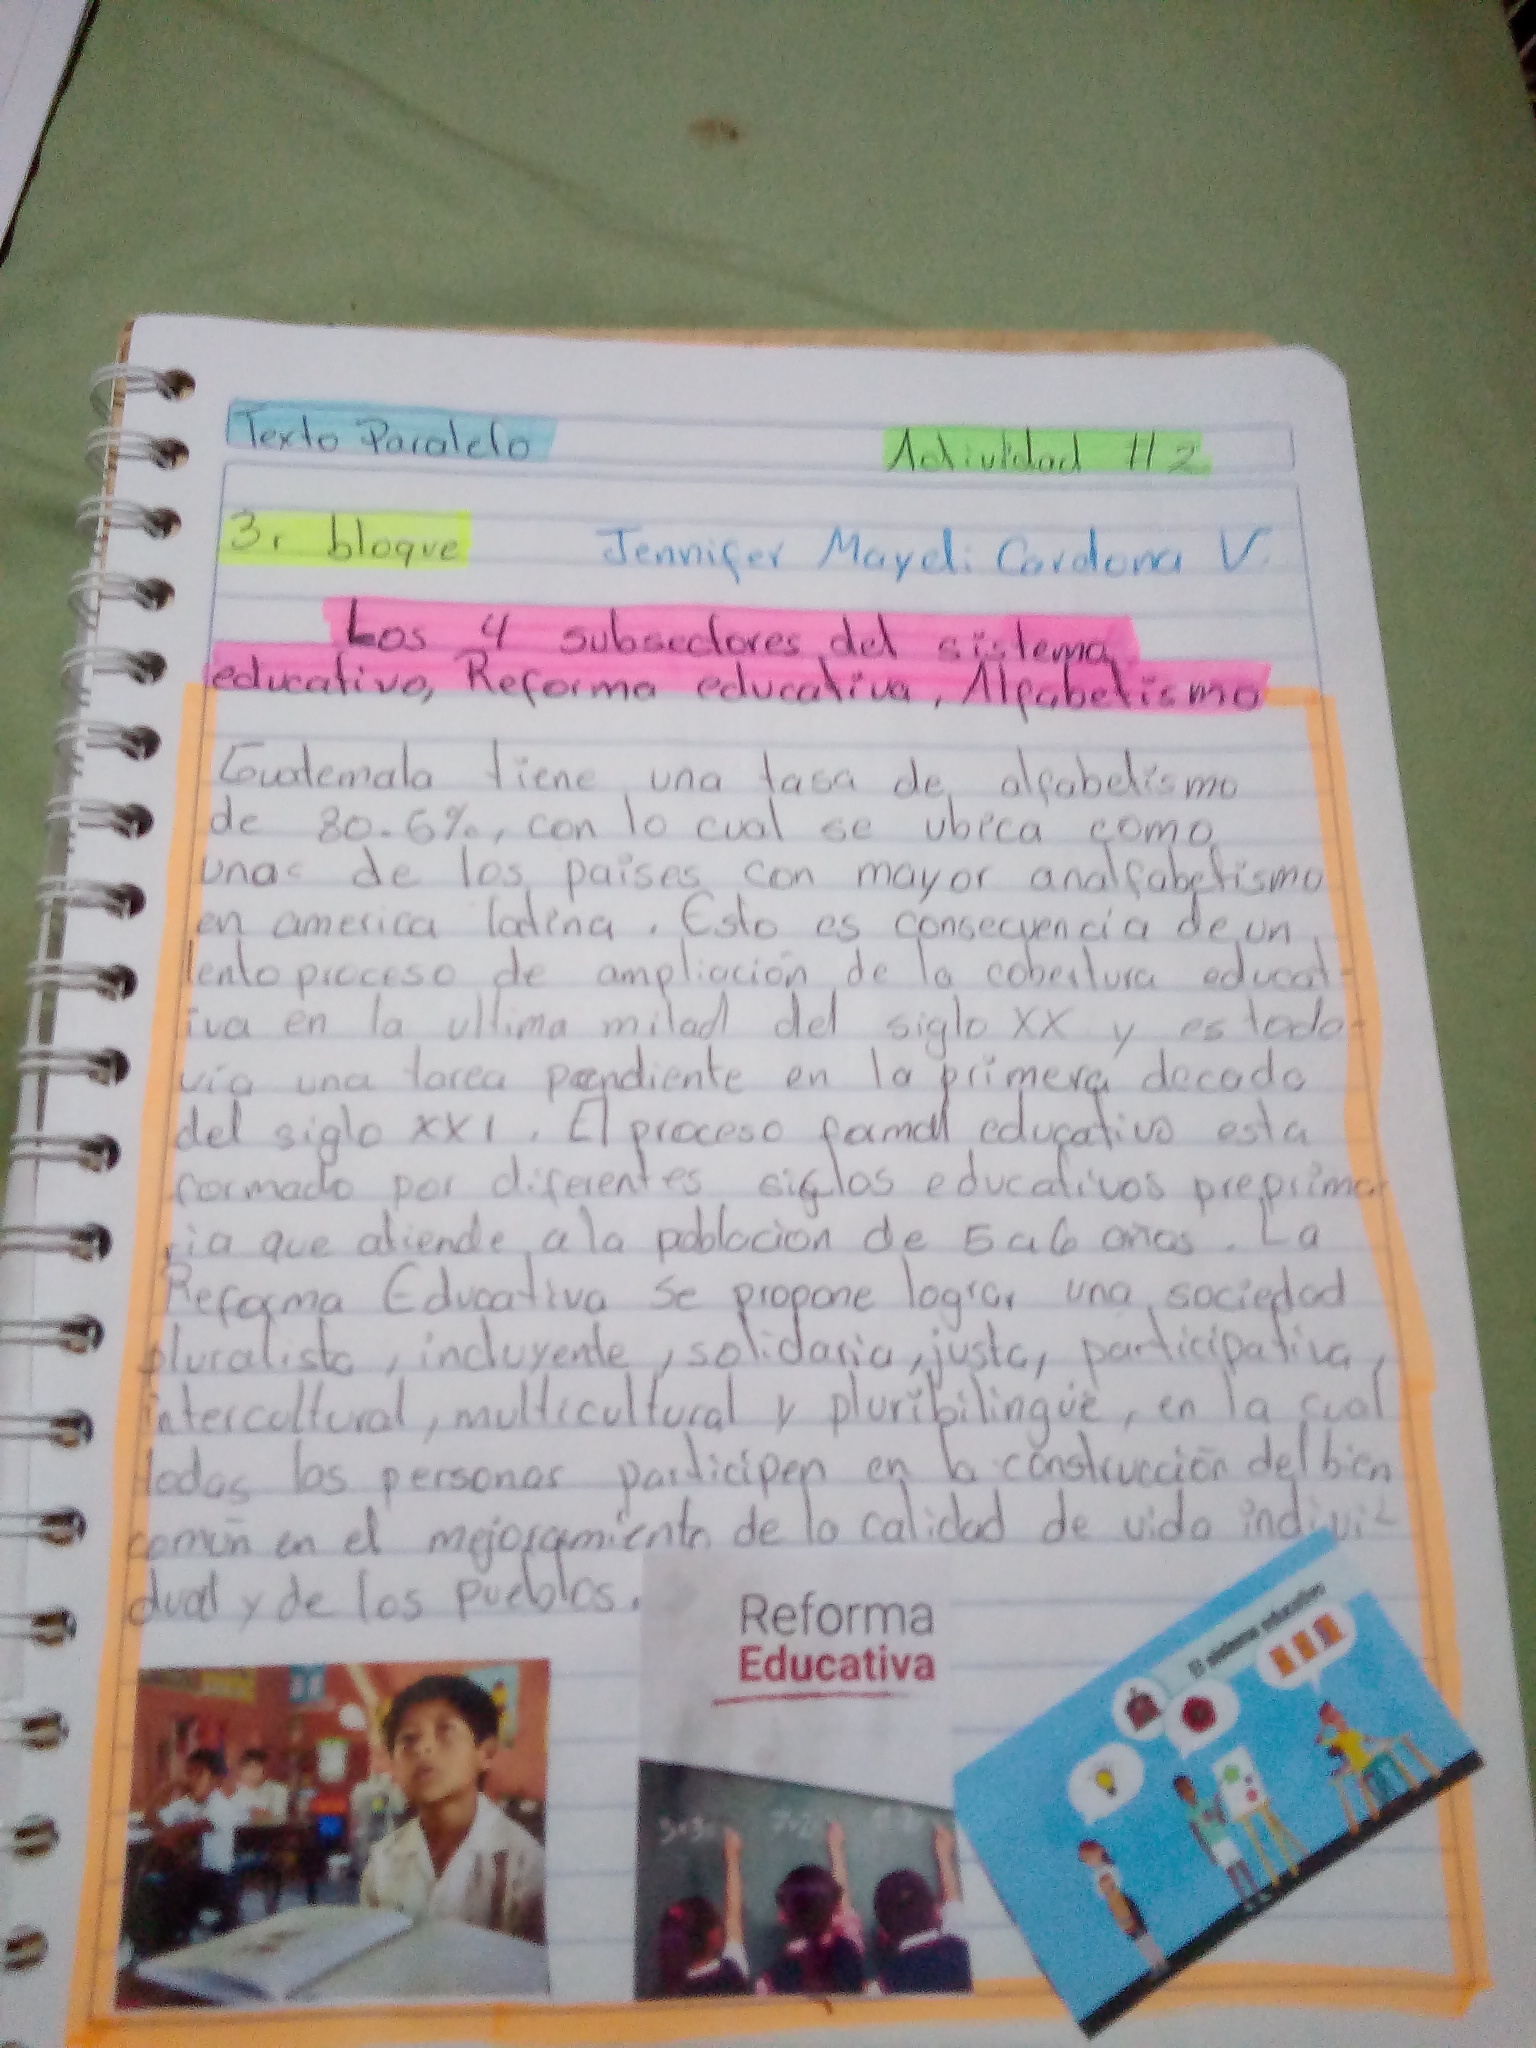 Texto Paralelo Actividad #2
3r bloque Jennifer Maydi Cardona V.
Los 4 subsectores del sistema
educativo, Reforma educativa, Alfabetismo
Guatemala tiene una tasa de alfabetismo
de 80.6%, con lo cual se ubica como
unas de los paises con mayor analfabetismo
en america latina. Esto es consecuencia de un
lento proceso de ampliación de la cobertura educat-
iva en la ultima mitad del siglo XX y es toda-
via una tarea pendiente en la primera decada
del siglo XXI. El proceso formal educativo esta
formado por diferentes siglos educativos preprima-
ria que atiende a la poblacion de 5 a 6 años. La
Reforma Educativa se propone lograr una sociedad
pluralista, incluyente, solidaria, justa, participativa,
intercultural, multicultural y pluribilingüe, en la cual
todas las personas participen en la construcción del bien
común en el mejoramiento de la calidad de vida indivi-
dual y de los pueblos.
Reforma
Educativa
El sistema educativo